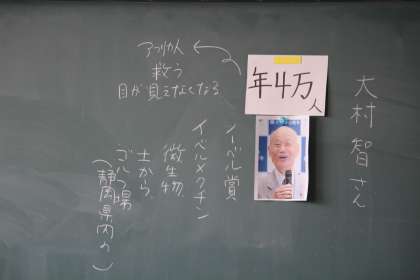 大村智さん
年4万人
アフリカ人
救う
目が見えなくなる
ノーベル賞
イベルメクチン
微生物
土から
ゴルフ場
(静岡県内の)